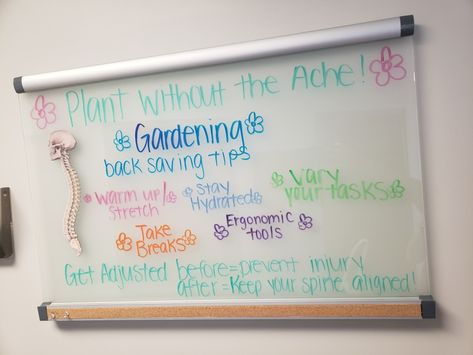 Plant without the Ache!
Gardening
back saving tips
warm up/
stretch
stay
Hydrated
vary
your tasks
Take
Breaks
Ergonomic
tools
Get Adjusted before=prevent injury
after=Keep your spine aligned!